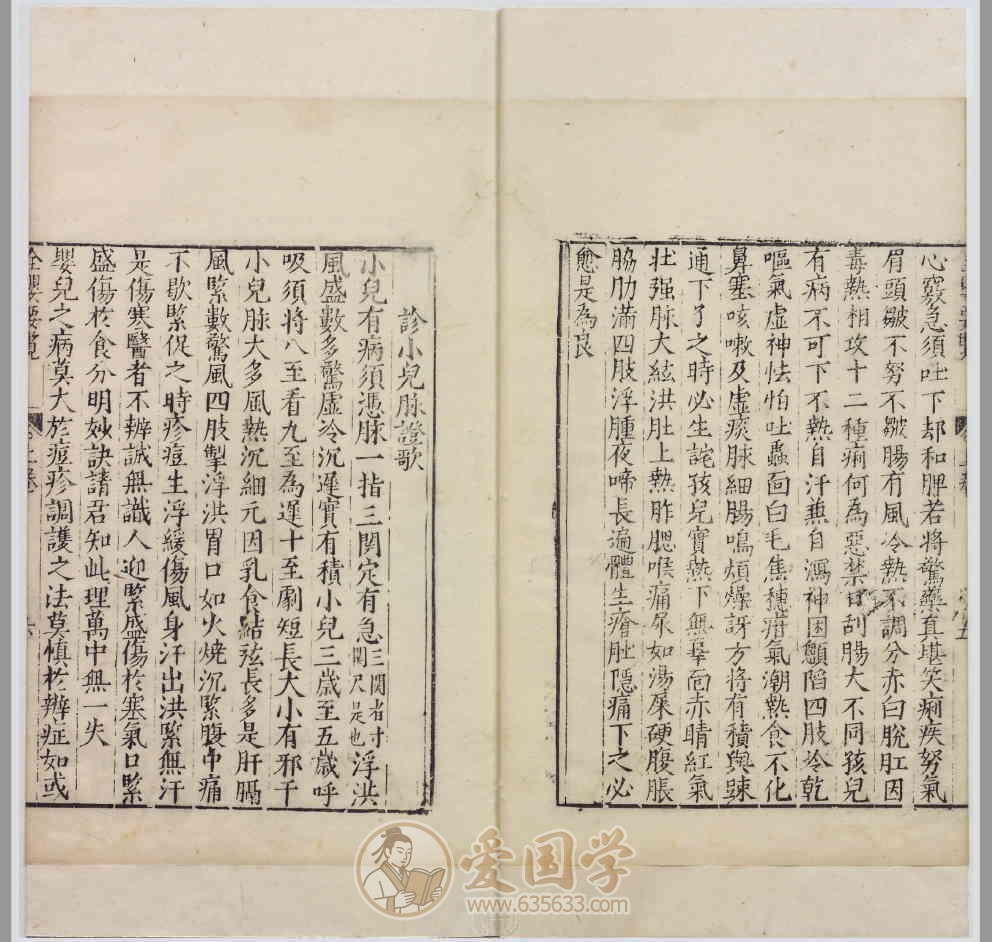 心竅急須吐下却和脾若將驚藥真堪笑痢疾努氣
眉頭皺不努不皺腸有風冷熱不調分赤白脫肛因
毒熱相攻十二種痢何為惡禁口刮腸大不同孩兒
有病不可下不熱自汗兼自瀉神困顖陷四肢冷乾
嘔氣虛神怯怕吐蟲面白毛焦穗疳氣潮熱食不化
鼻塞咳嗽及虛痰脉細腸鳴煩燥訝方將有積與踈
通下了之時必生詫孩兒實熱下無辜面赤睛紅氣
壮强脉大絃洪肚上熱胙腮喉痛尿如湯屎硬腹脹
脇肋滿四肢浮腫夜啼長遍體生瘡肚隠痛下之必
愈是為良
診小兒脉證歌
小兒有病須憑脉一指三関定有急三関者寸関尺是也浮洪
風盛數多驚虛冷沉遲實有積小兒三歲至五歲呼
吸須將八至看九至為遲十至劇短長大小有邪干
小兒脉大多風熱沉細元因乳食結弦長多是肝膈
風緊數驚風四肢掣浮洪胃口如火燒沉緊腹中痛
不歇緊促之時疹痘生浮緩傷風身汗出洪緊無汗
是傷寒醫者不辨誠無識人迎緊盛傷於寒氣口緊
盛傷於食分明妙訣請君知此理萬中無一失
嬰兒之病莫大於痘疹調護之法莫慎於辨症如或
全嬰要覽
上卷
六
爱国学
www.635633.com